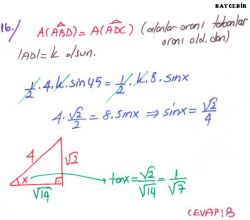 BAYCEBİR
16.) A(ABD) = A(ADC) (alanlar oranı tabanlar oranı old.dan)
|AD|=k olsun.
1/2 . 4 . k . sin45 = 1/2 . k . 8 . sinx
4 . √2/2 = 8 . sinx ⇒ sinx = √2/4
4
√2
x
√14
tanx = √2/√14 = 1/√7
CEVAP: B